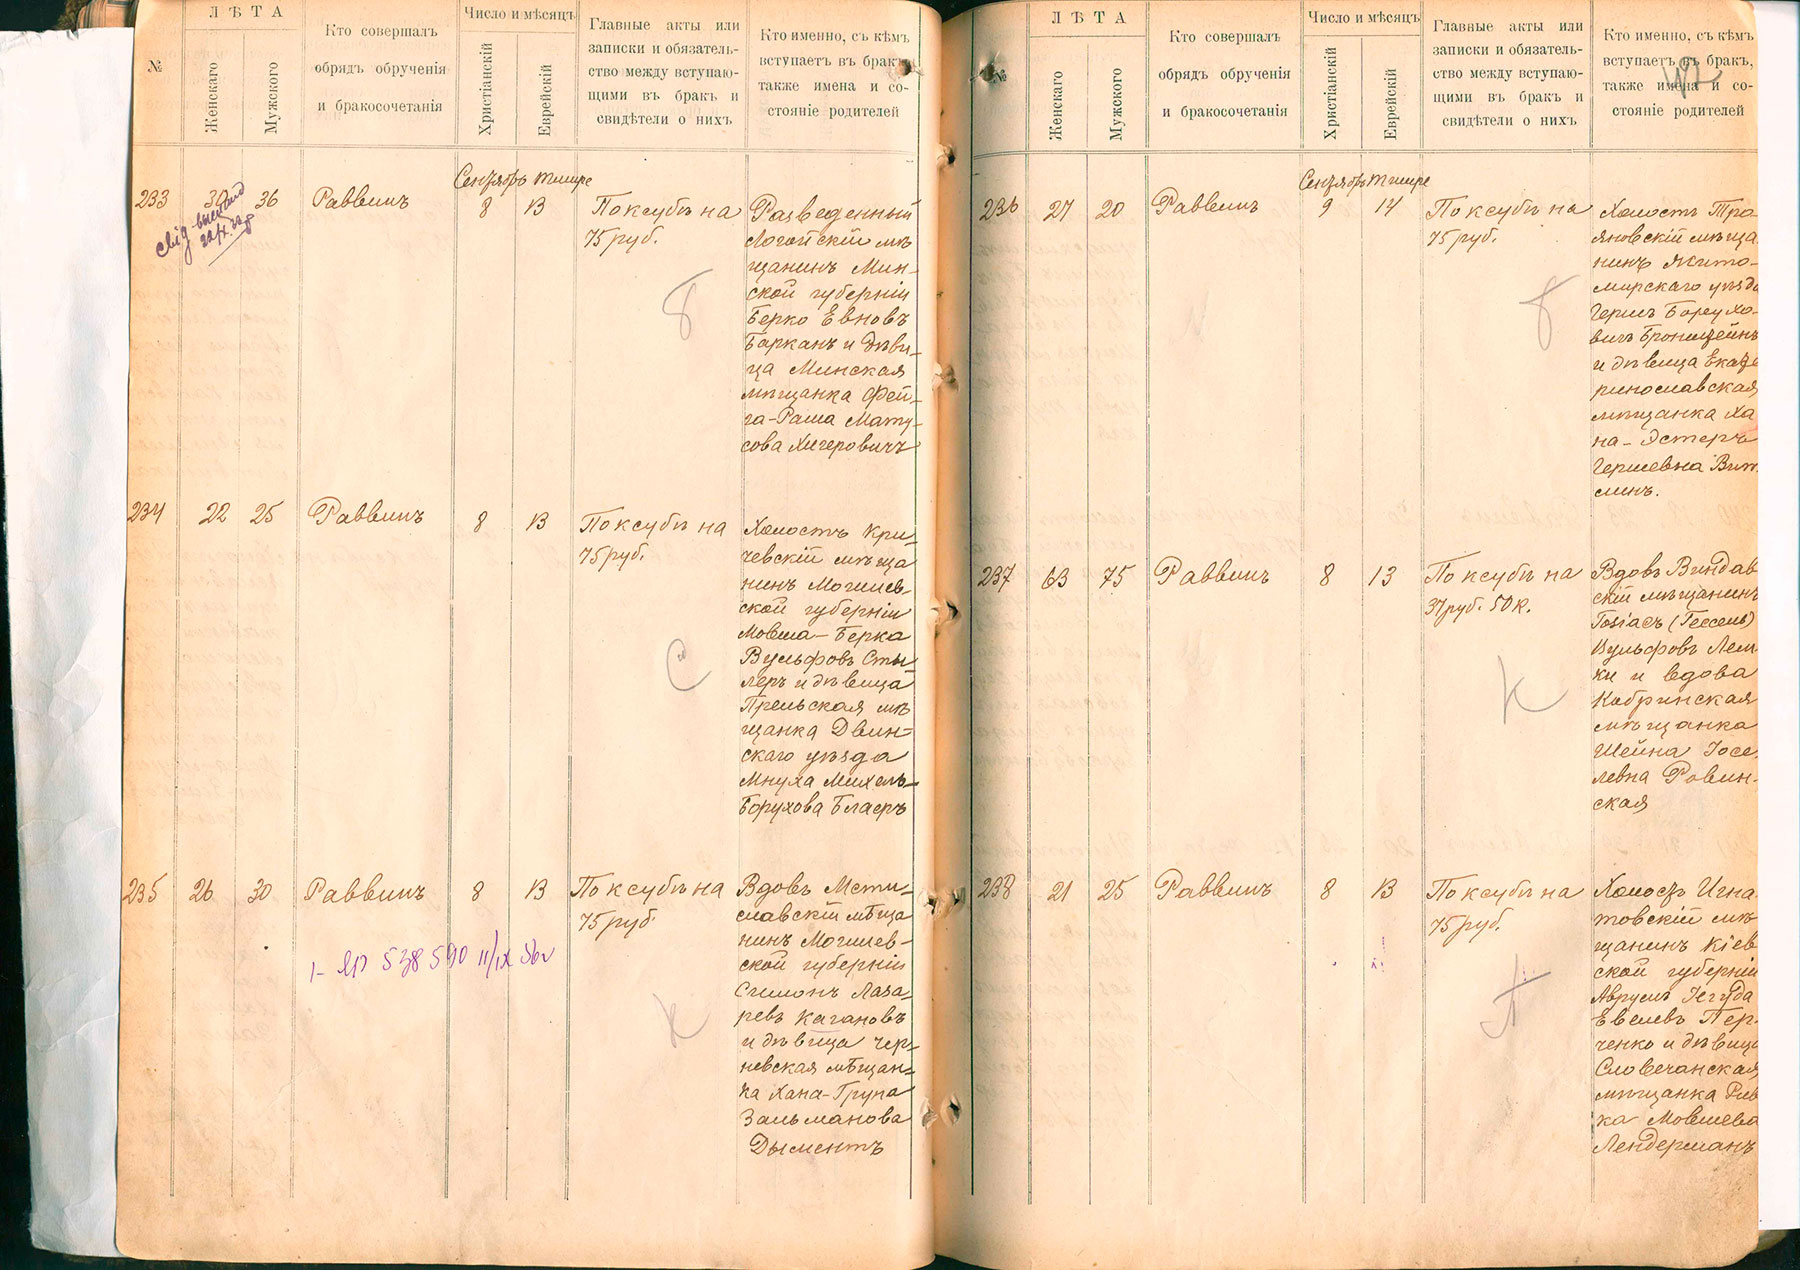 №
ЛѢТА
Женскаго
Мужского
Кто совершалъ
обрядъ обрученія
и бракосочетанія
Число и мѣсяцъ
Христіанскій
Еврейскій
Главные акты или
записки и обязатель-
ство между вступаю-
щими въ бракъ и
свидѣтели о нихъ
Кто именно, съ кѣмъ
вступаетъ въ бракъ,
также имена и со-
стояніе родителей
Сентябрь Тишре
233 30 36 Раввинъ 8 13
По ксубѣ на
75 руб.
Разведенный
Логойскій мѣ
щанинъ Мин-
ской губерніи
Берко Евновъ
Барканъ и дѣви-
ца Минская
мѣщанка Фей-
га-Раша Мату-
сова Хигеровичъ
Б
234 22 25 Раввинъ 8 13
По ксубѣ на
75 руб.
Холостъ Кри-
чевскій мѣща
нинъ Могилев-
ской губерніи
Мовша-Берка
Вульфовъ Сты-
леръ и дѣвица
Прельская мѣ
щанка Двин-
скаго уѣзда
Мнуха Михель-
Борухова Бласръ
С
235 26 30 Раввинъ 8 13
По ксубѣ на
75 руб.
538590 11/IX
Вдовъ Мсти-
славскій мѣща
нинъ Могилев-
ской губерніи
Симонъ Лаза-
ревъ Кагановъ
и дѣвица Чер-
невская мѣщан-
ка Хана-Груна
Зальманова
Дыментъ
К
№
ЛѢТА
Женскаго
Мужского
Кто совершалъ
обрядъ обрученія
и бракосочетанія
Число и мѣсяцъ
Христіанскій
Еврейскій
Главные акты или
записки и обязатель-
ство между вступаю-
щими въ бракъ и
свидѣтели о нихъ
Кто именно, съ кѣмъ
вступаетъ въ бракъ,
также имена и со-
стояніе родителей
Сентябрь Тишре
236 27 20 Раввинъ 9 14
По ксубѣ на
75 руб.
Холостъ Тро-
яновскій мѣща
нинъ Жито-
мирскаго уѣзда
Гершъ Борухо-
вичъ Бронштейнъ
и дѣвица Екате
ринославская
мѣщанка Ха
на-Эстеръ
Гершевна Вит
линъ.
Б
237 63 75 Раввинъ 8 13
По ксубѣ на
37 руб. 50 к.
Вдовъ Виндав
скій мѣщанинъ
(Гессель)
Вульфовъ Лем
ки и вдова
Кобринская
мѣщанка
Шейна Іосе
левна Ровин-
ская
К
238 21 25 Раввинъ 8 13
По ксубѣ на
75 руб.
Холостъ Игна
товскій мѣ
щанинъ Кіев
ской губерніи
Аврумъ Іегуда
Евелевъ Пер-
ченко и дѣвица
Словечанская
мѣщанка Рив
ка Мовшева
Лендерманъ